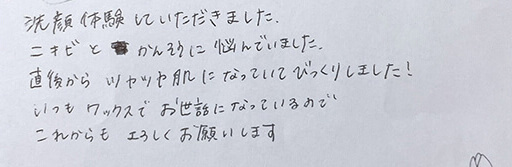 洗顔体験していただきました.
ニキビと かんそうに悩んでいました.
直後からツヤツヤ肌になっていてびっくりしました!
いつもワックスでお世話になっているので
これからもよろしくお願いします